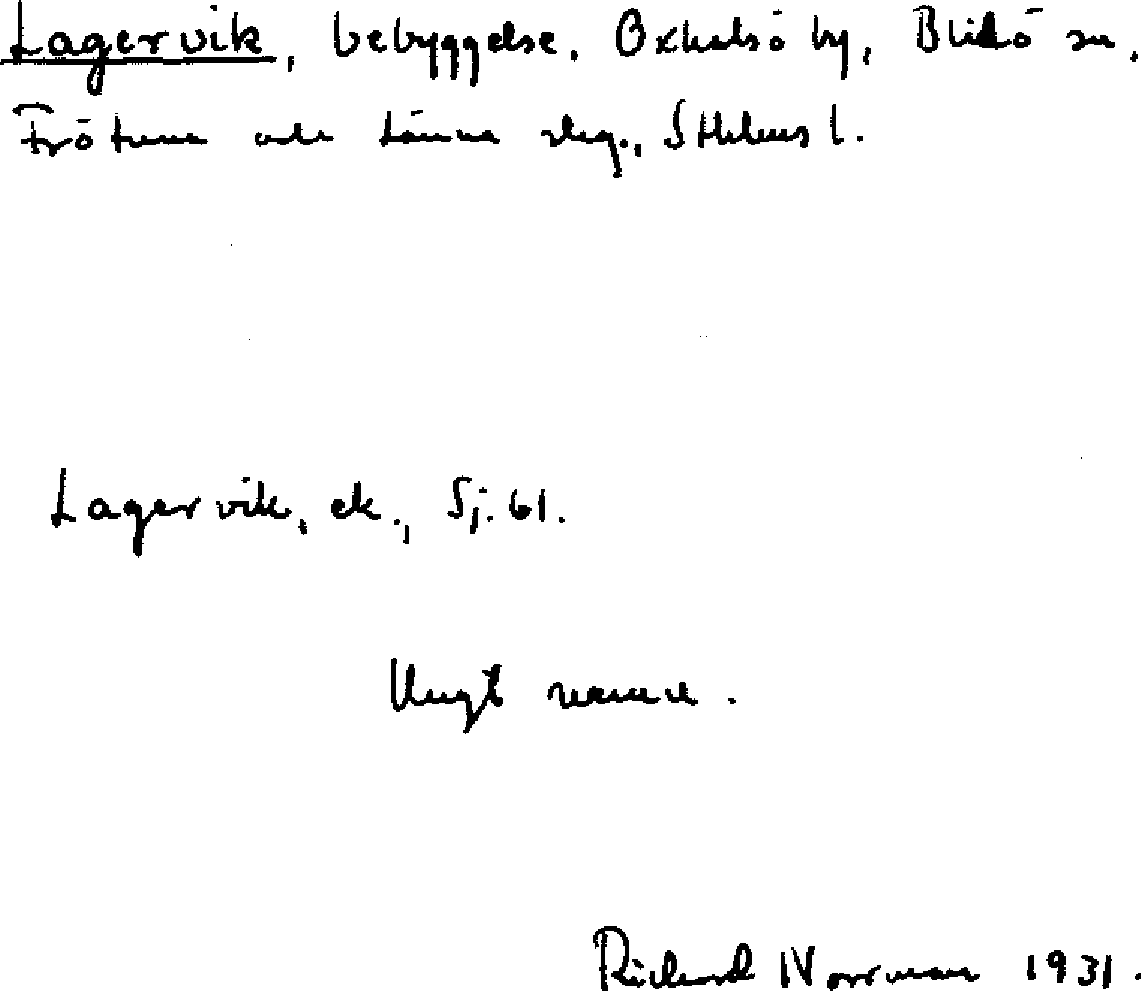 Lagervik, bebyggelse. Oxhalsö by, Blidö sn.
Frötuna och Länna skg., Sthlms l.
Lagervik, ek., Sj. 61.
Ungt namn.
Richard Norrman 1931.